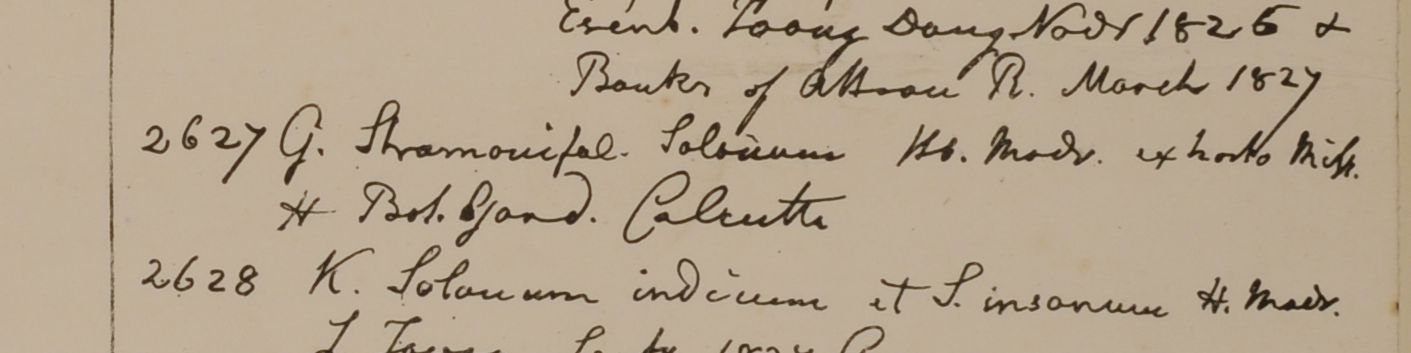 Toong Dong Novr 1826 &
Banks of Attran R. March 1827
2627 G. Stramonifol. Solanum Hb. Madr. ex horto Miss.
H Bot. Gard. Calcutta
2628 K. Solanum indicum et S. insanum H. Madr.